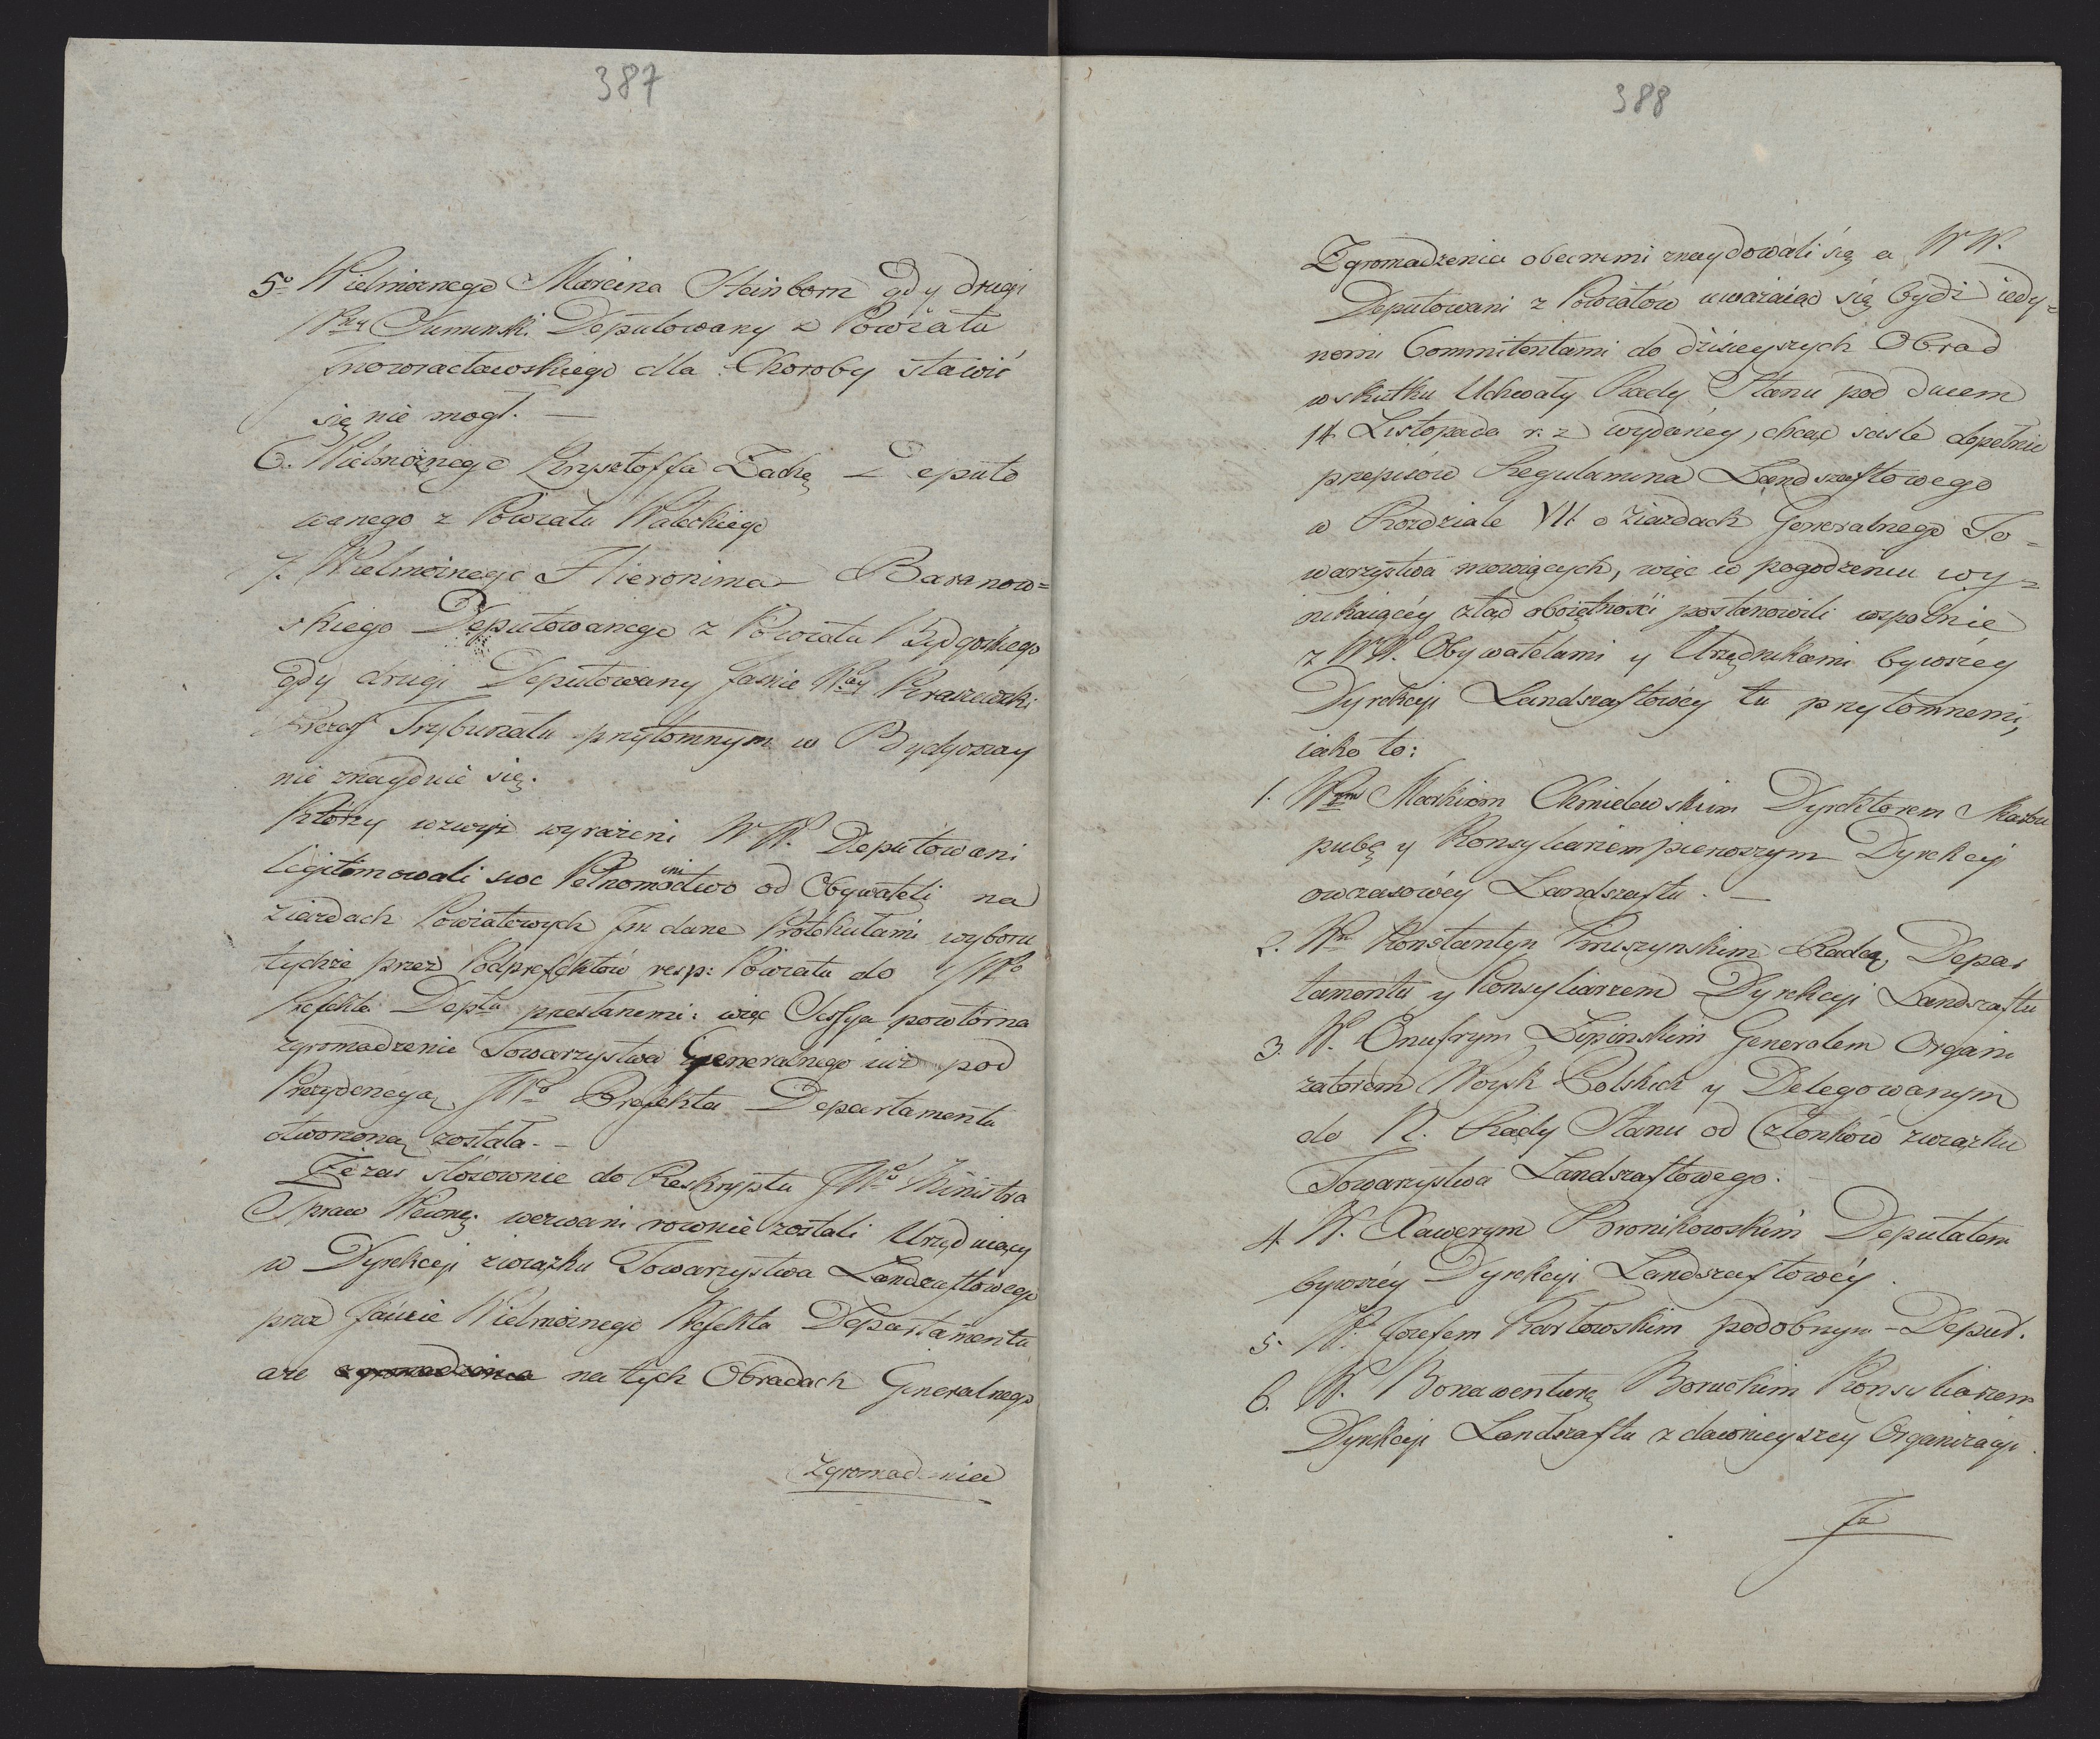 387
5o Wielmożnego Marcina Steinborn gdy drugi
Wny Sumiński Deputowany z Powiatu
Jnowracławskiego dla Choroby stawić
się nie mogł. —
6. Wielmożnego Krysztoffa Zachę Deputo
wanego z Powiatu Wałeckiego
7. Wielmożnego Hieronima Baranow=
skiego Deputowanego z Powiatu Bydgoskiego
gdy drugi Deputowany Jaśnie Wny
Prezes Trybunału przytomnym w Bydgoszczy
nie znayduie się.
Którzy wzwyż wyrażeni WW. Deputowani
legitimowali swe Pełnomocnictwo od Obywateli na
ziazdach Powiatowych Jm dane Protokułami wyboru
tychże przez Podprefektów resp: Powiatu do JWo
Prefekta Deptu przesłanemi: więc Sessya powtórna
zgromadzenie Towarzystwa Generalnego iuż pod
Prezydencyą JWo Prefekta Departamentu
otworzoną została. —
Że zaś stósownie do Reskryptu JWo Ministra
Spraw Wewnę. wezwani rownie zostali Urzęduiący
w Dyrekcyi związku Towarzystwa Landszaftowego
przez Jaśnie Wielmożnego Prefekta Departamentu
aże zgromadzenia na tych Obradach Generalnego
Zgromadzenia
388
Zgromadzenia obecnemi znaydowali się a WW.
Deputowani z Powiatów uważaiąc się bydź iedy=
nemi Committentami do dzisieyszych Obrad
w skutku Uchwały Rady Stanu pod dniem
14 Listopada r. z wydaney, chcąc sciśle dopełnić
przepisów Regulamina Landszaftowego
w Rozdziale VII o ziazdach Generalnego To=
warzystwa mowiących, więc w pogodzeniu wy=
nikaiącéy ztąd oboiętności postanowili wspolnie
z WW. Obywatelami y Urzędnikami bywszey
Dyrekcyi Landszaftowéy tu przytomnemi,
iako to:
1. Wnym Markiem Chmielewskim Dyrektorem Skarbu
pubę y Konsyliarzem pierwszym Dyrekcyi
owczasowéy Landszaftu. —
2. Wn Konstantyn Kruszynskim Radcą Depar
tamentu y Konsyliarzem Dyrekcyi Landszaftu
3. W. Onufrym Lipinskim Generalem Organi
zatorem Woysk Polskich y Delegowanym
do N. Rady Stanu od Członków związku
Towarzystwa Landszaftowego.
4. W. Xawerym Bronikowskim Deputatem
bywszéy Dyrekcyi Landszaftowéy.
5. W. Jozefem Karłowskim podobnym – Deput.
6. W. Bonawenturą Boruckim Konsyliarzem
Dyrekcyi Landszaftu z dawnieyszey Organizacyi.
Ja